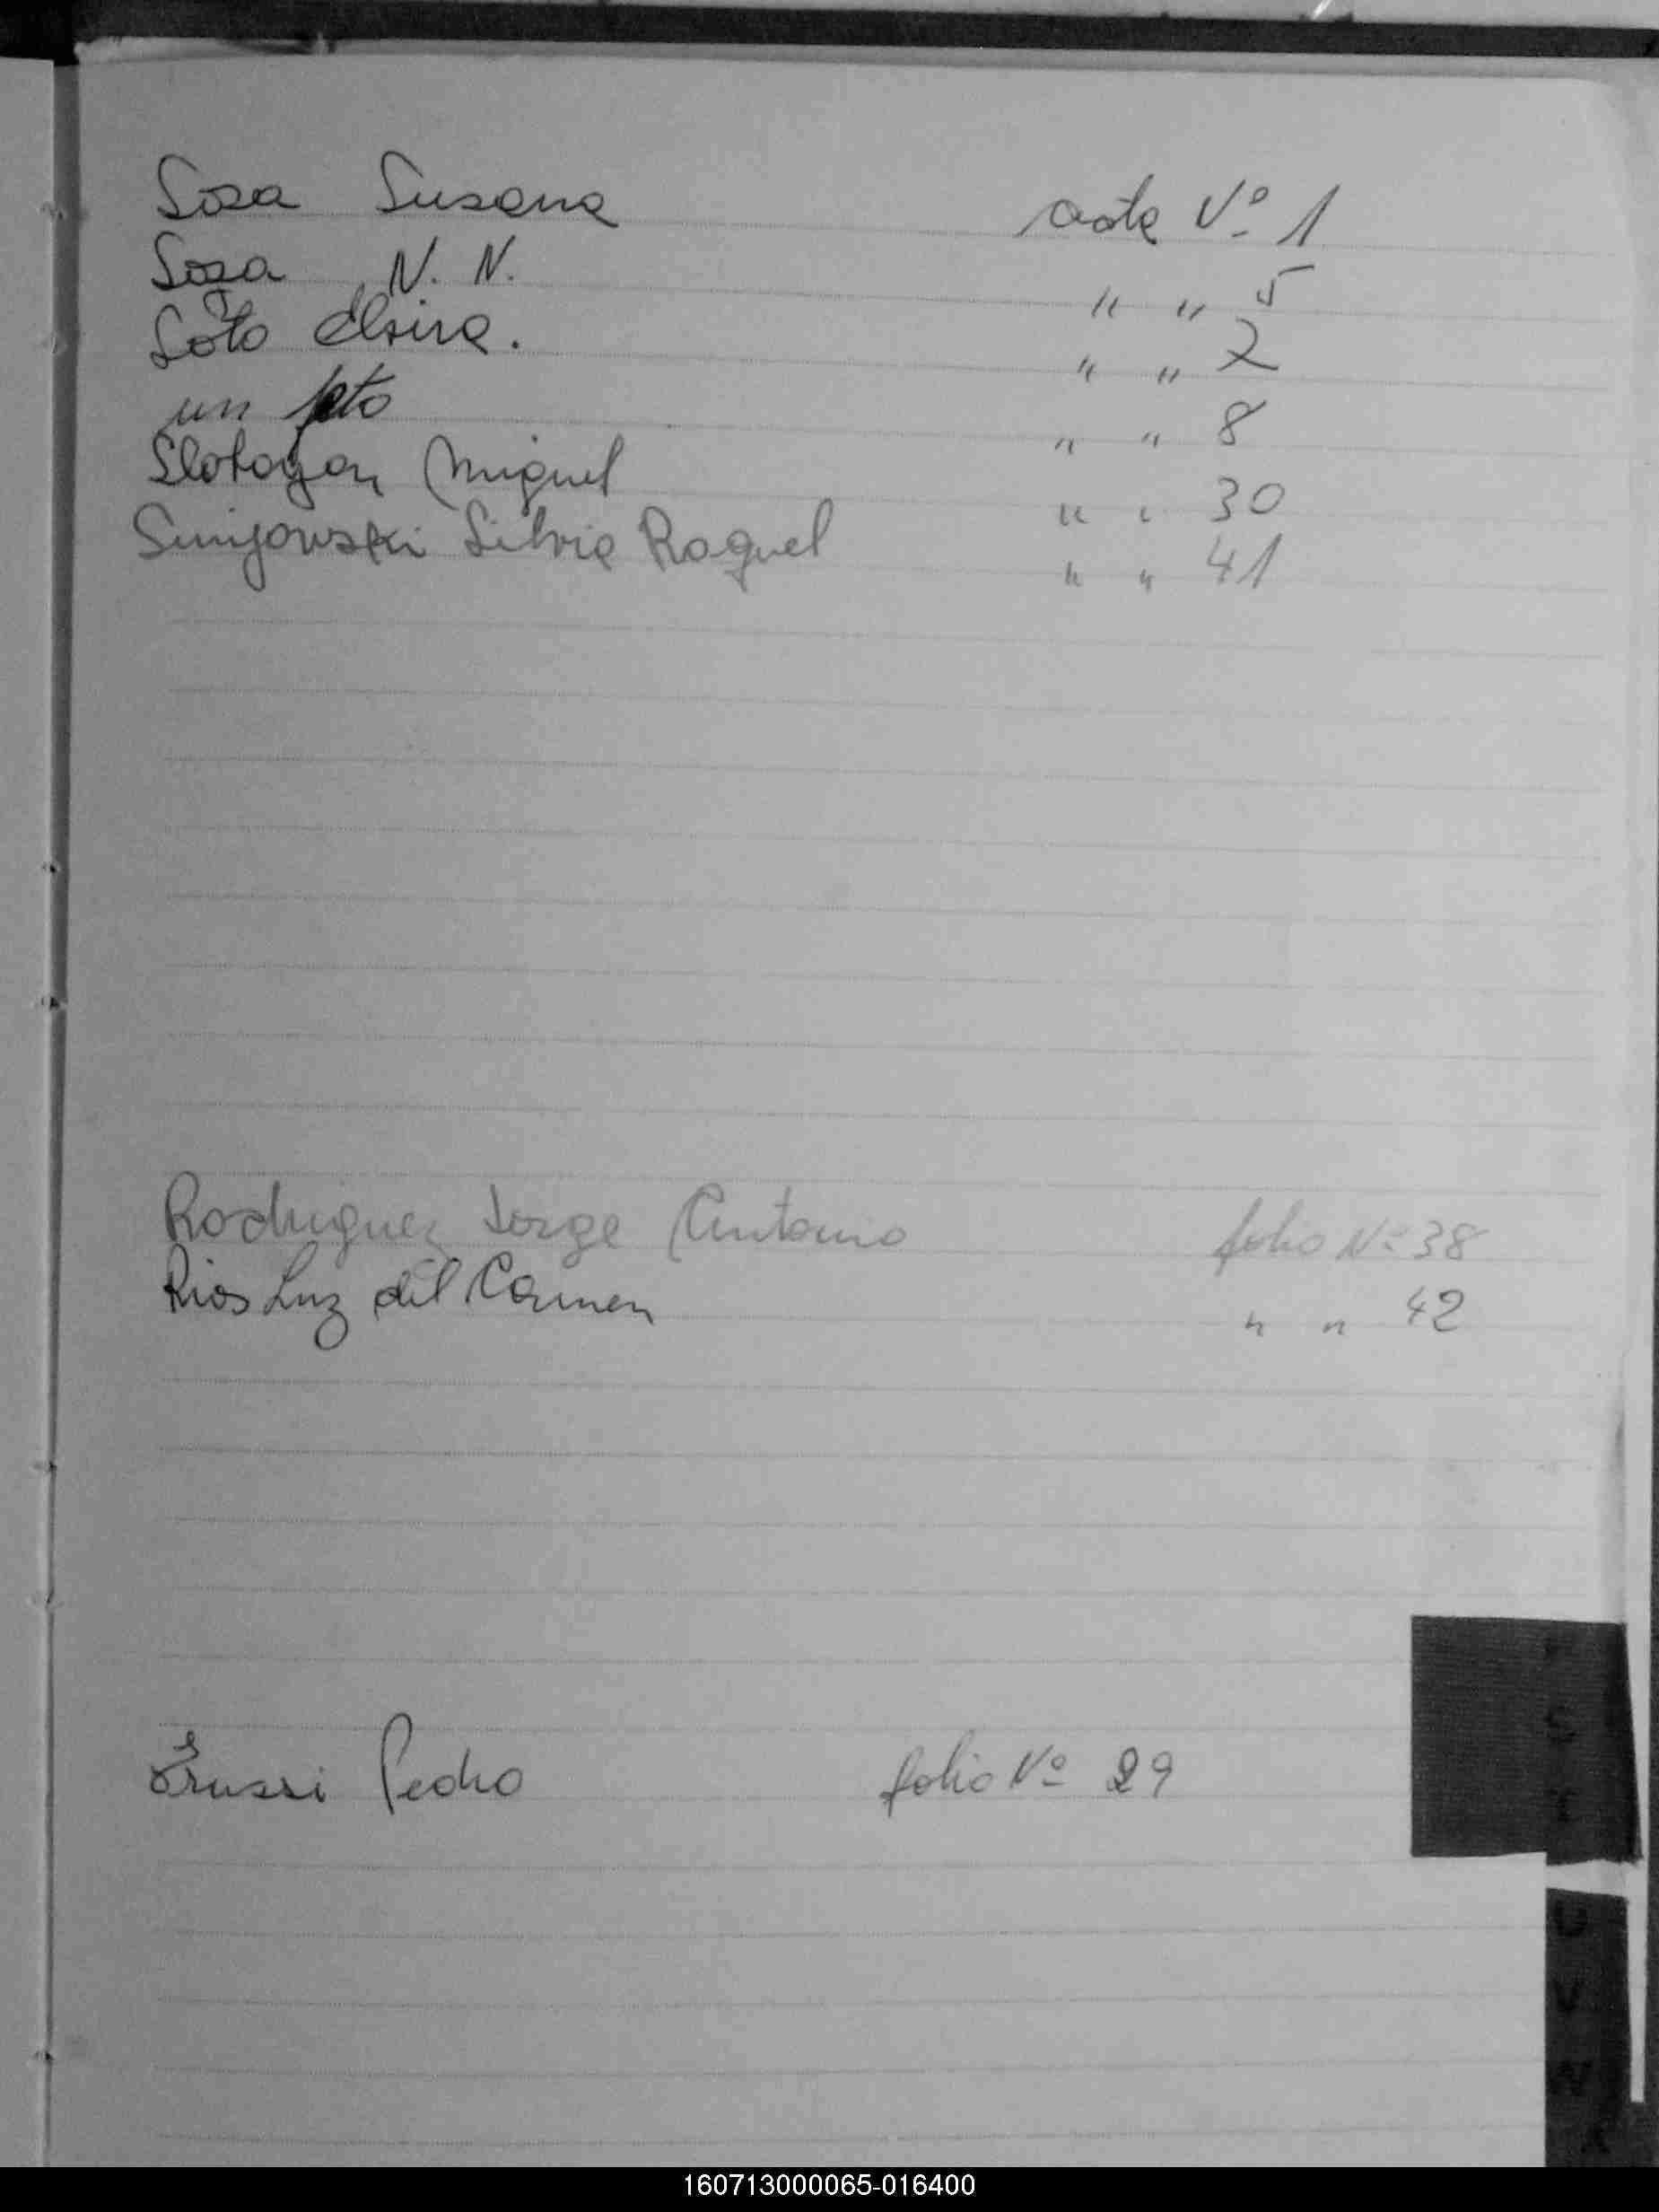 Sosa Susana acta Nº 1
Sosa N. N. " " 5
Soto Elvira. " " 2
un feto " " 8
Slotogon Miguel " " 30
Smijowski Silvia Raquel " " 41
Rodriguez Jorge Antonio folio Nº 38
Rios Luz del Carmen " " 42
Trussi Pedro folio Nº 29
S
T
U
V
W
X
160713000065-016400